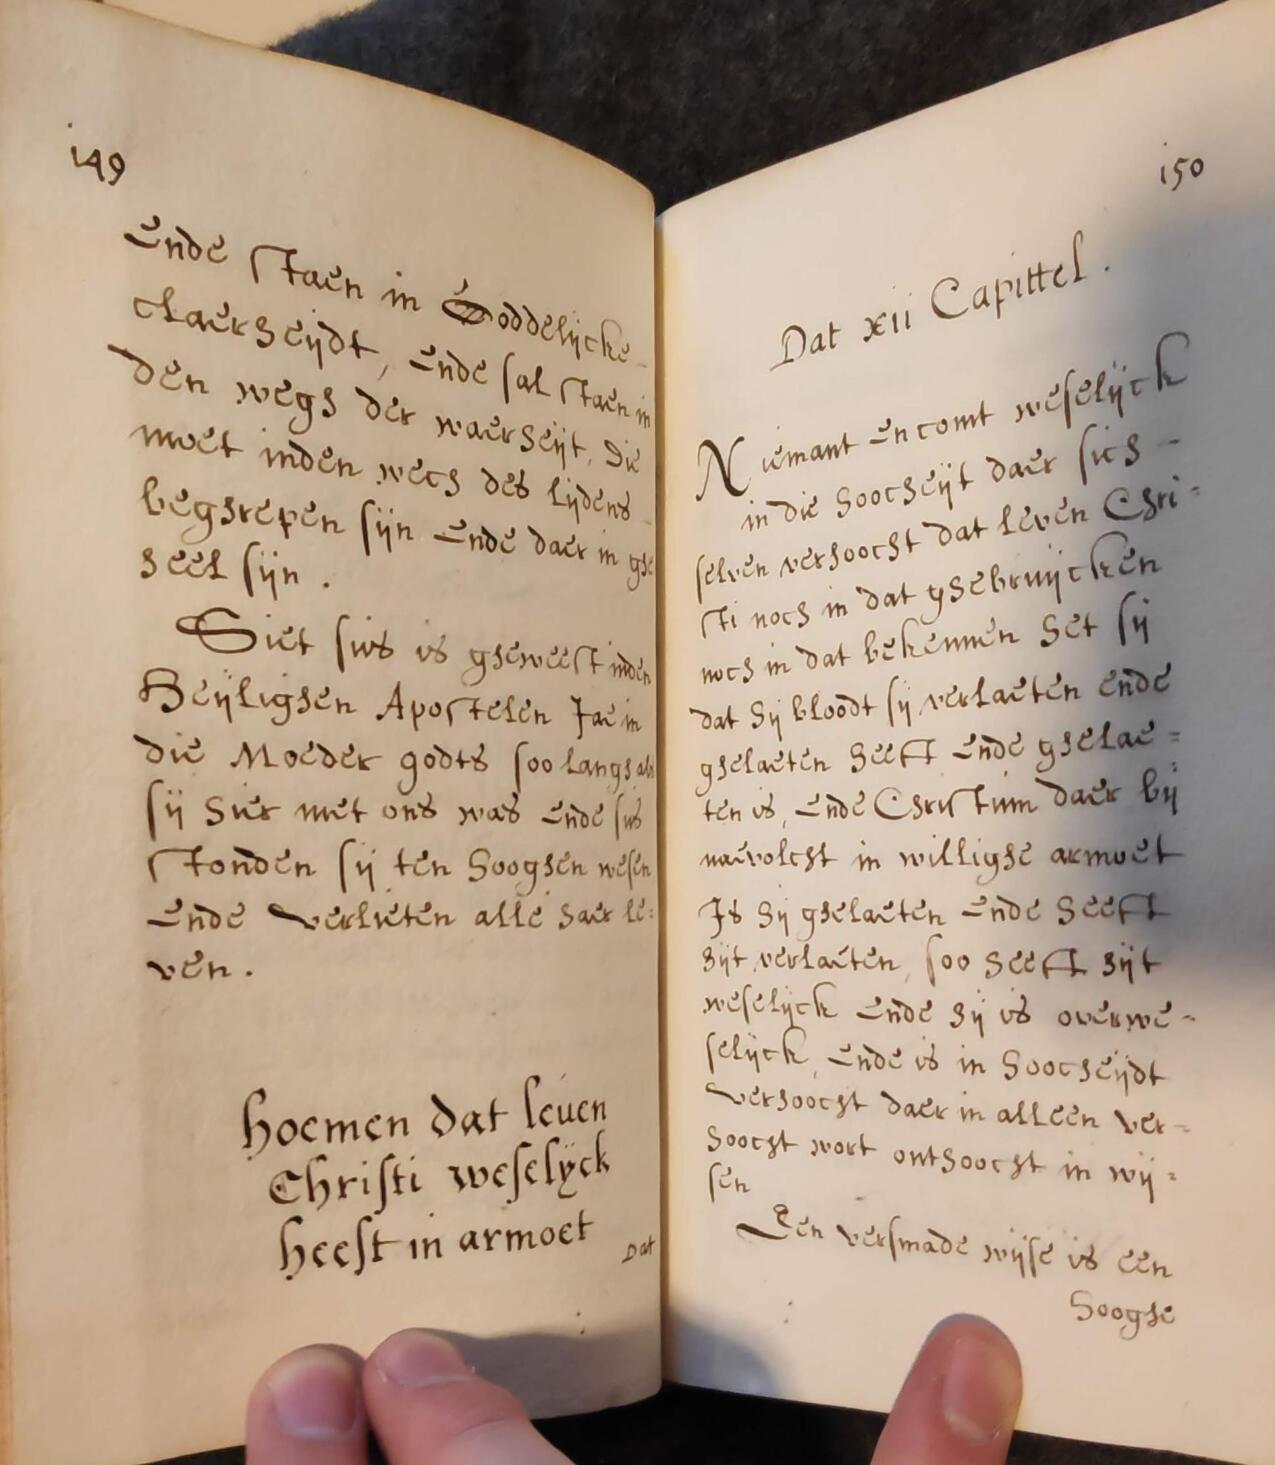 149
Ende staen in Goddelijcke
claerheijdt, ende sal staen in
den wegh der waerheijt, die
moet inden wech des lijdens
beghrepen sijn ende daer in ghe
heel sijn.
Siet sus is gheweest inden
Heijlighen Apostelen Jae in
die Moeder godts soo langh als
sij hier met ons was ende sus
stonden sij ten hooghen wesen
ende verlieten alle haer le=
ven.
hoemen dat leuen
Christi weselijck
heeft in armoet
Dat
150
Dat xii Capittel.
Niemant en comt weselijck
in die hoocheijt daer sich
selven verhoocht dat leven Chri=
sti noch in dat ghebruijcken
noch in dat bekennen het sij
dat hij bloodt sij verlaeten ende
ghelaeten heeft ende ghelae=
ten is, ende Christum daer bij
naevolcht in willighe armoet
Is hij ghelaeten ende heeft
hijt verlaeten, soo heeft hijt
weselijck ende hij is overwe=
selijck, ende is in hoocheijdt
verhoocht daer in alleen ver=
hoocht wort onthoocht in wij=
sen
Een versmade wijse is een
hooghe